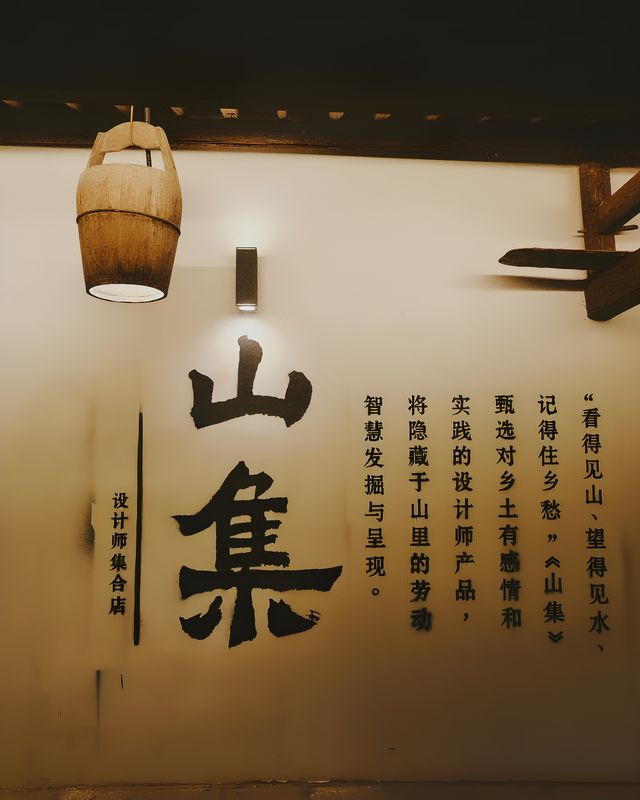 “看得见山、望得见水、
记得住乡愁”《山集》
甄选对乡土有感情和
实践的设计师产品，
将隐藏于山里的劳动
智慧发掘与呈现。
山集
设计师集合店